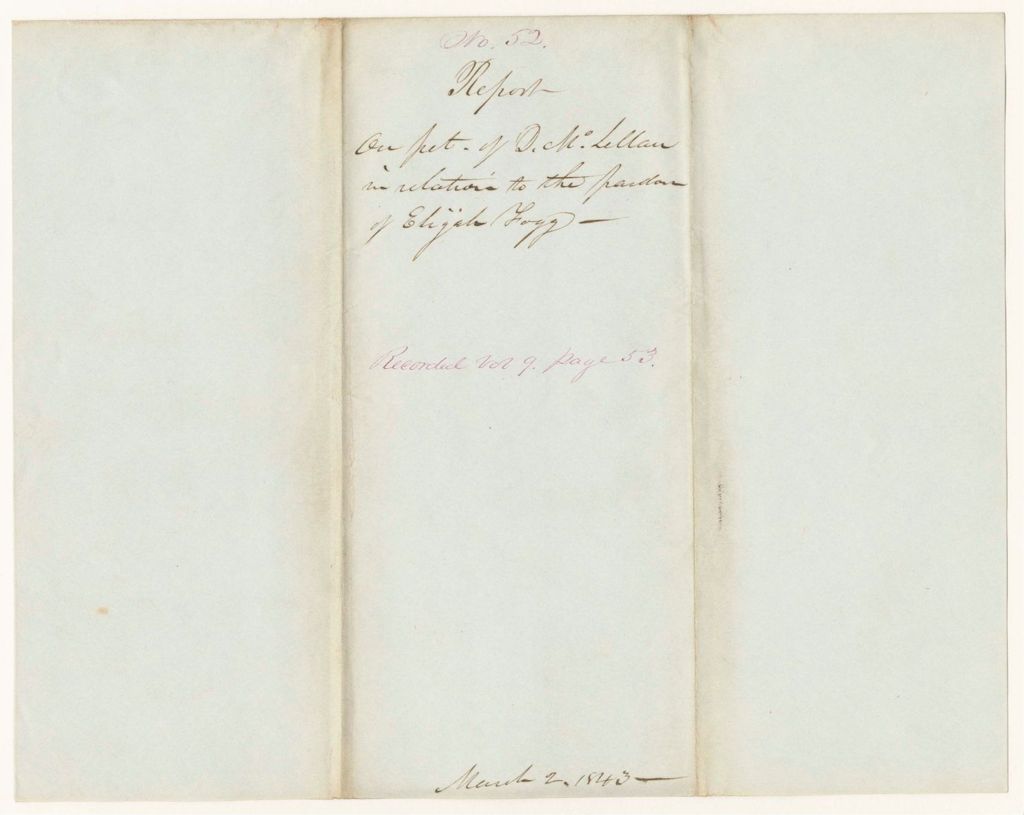 No. 52.
Report
On pet. of D. Mc. Lellan
in relation to the pardon
of Elijah Fogg —
Recorded Vol 9. page 53.
March 2. 1843 —